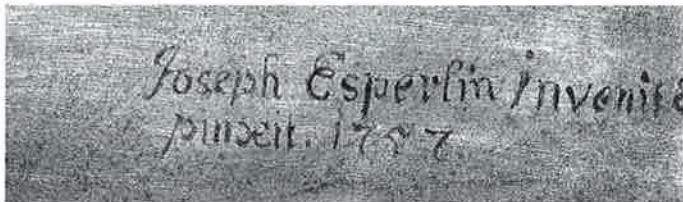 Joseph Esperlin Invenit &
pinxit. 1757.